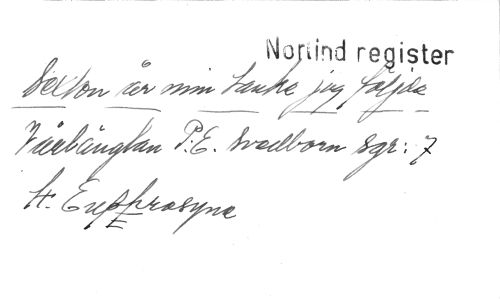 Norlind register
Sexton är min tanke jag följde
Vårlängtan P.E. Svedbom Sgr: 7
H. Euphrosyne